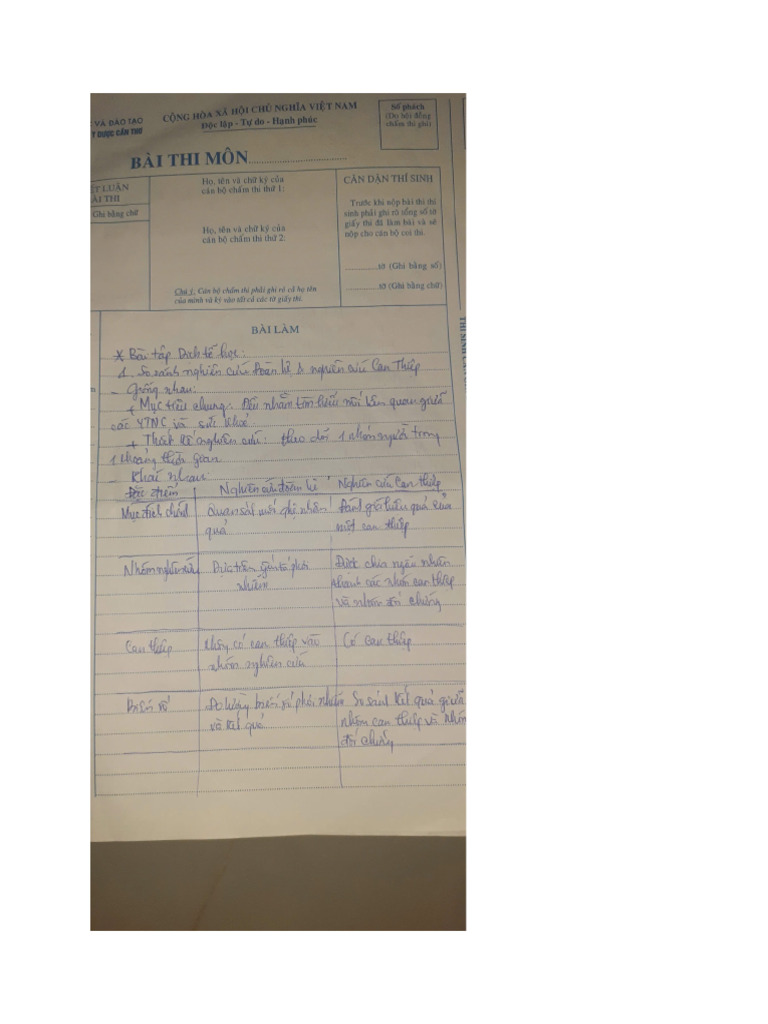 VÀ ĐÀO TẠO
CỘNG HÒA XÃ HỘI CHỦ NGHĨA VIỆT NAM
T DƯỢC CẦN THƠ
Độc lập - Tự do - Hạnh phúc
Số phách
(Do hội đồng
chấm thi ghi)
BÀI THI MÔN
ẾT LUẬN
ÀI THI
Ghi bằng chữ
Họ, tên và chữ ký của
cán bộ chấm thi thứ 1:
Họ, tên và chữ ký của
cán bộ chấm thi thứ 2:
Chú ý: Cán bộ chấm thi phải ghi rõ cả họ tên
của mình và ký vào tất cả các tờ giấy thi.
CĂN DẶN THÍ SINH
Trước khi nộp bài thi thí
sinh phải ghi rõ tổng số tờ
giấy thi đã làm bài và sẽ
nộp cho cán bộ coi thi.
tờ (Ghi bằng số)
tờ (Ghi bằng chữ)
BÀI LÀM
* Bài tập Dịch tễ học:
1. So sánh nghiên cứu đoàn hệ & nghiên cứu Can Thiệp
- Giống nhau:
+ Mục tiêu chung: Đều nhằm tìm hiểu mối liên quan giữa
các YTNC và sức khoẻ
+ Thiết kế nghiên cứu: theo dõi 1 nhóm người trong
1 khoảng thời gian
- Khác nhau
Đặc điểm Nghiên cứu đoàn hệ Nghiên cứu Can thiệp
Mục đích chính Quan sát mối nhân Đánh giá hiệu quả của
quả một can thiệp
Nhóm nghiên cứu Dựa trên yếu tố phơi Được chia ngẫu nhiên
nhiễm thành các nhóm can thiệp
và nhóm đối chứng
Can thiệp Không có can thiệp vào Có can thiệp
nhóm nghiên cứu
Biến số Đo lường biến số phơi nhiễm So sánh kết quả giữa
và kết quả nhóm can thiệp và nhóm
đối chứng